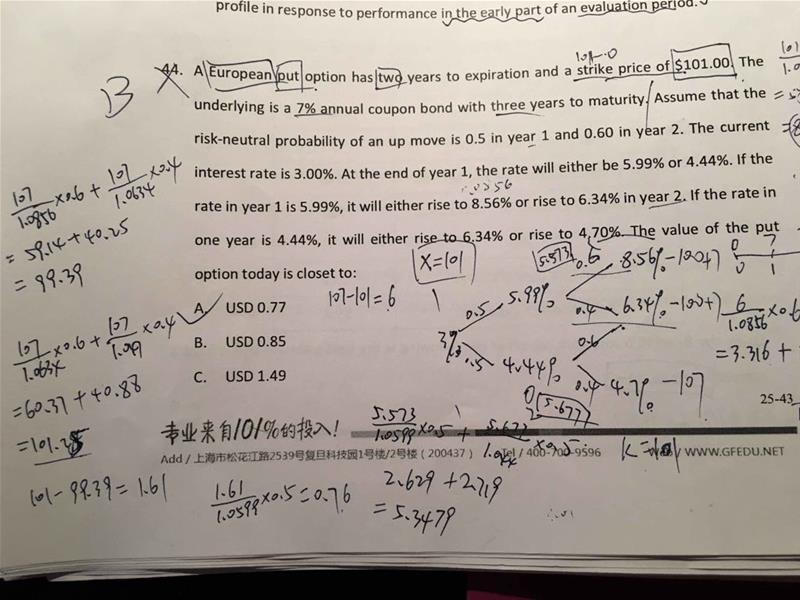 profile in response to performance in the early part of an evaluation period.
B
44. A European put option has two years to expiration and a strike price of $101.00. The
underlying is a 7% annual coupon bond with three years to maturity. Assume that the
risk-neutral probability of an up move is 0.5 in year 1 and 0.60 in year 2. The current
interest rate is 3.00%. At the end of year 1, the rate will either be 5.99% or 4.44%. If the
rate in year 1 is 5.99%, it will either rise to 8.56% or rise to 6.34% in year 2. If the rate in
one year is 4.44%, it will either rise to 6.34% or rise to 4.70%. The value of the put
option today is closet to:
A. USD 0.77
B. USD 0.85
C. USD 1.49
107/1.0856 x0.6 + 107/1.0634 x0.4
= 59.14 + 40.25
= 99.39
107/1.0634 x0.6 + 107/1.047 x0.4
= 60.37 + 40.88
101 - 99.39 = 1.61
1.61/1.0599 x0.5 = 0.76
X=101
107-101=6
5.573
3%
0.5
5.99%
0.5
4.44%
0.6
8.56% -100+7
0.4
6.34% -100+7
0.6
0.4
4.7% -107
5.677
6/1.0856 x0.6
= 3.316 +
5.573/1.0599 x0.5 +
2.629 + 2.719
= 5.3479
25-43
专业来自101%的投入!
Add / 上海市松花江路2539号复旦科技园1号楼/2号楼（200437） Tel / 400-700-9596 / WWW.GFEDU.NET